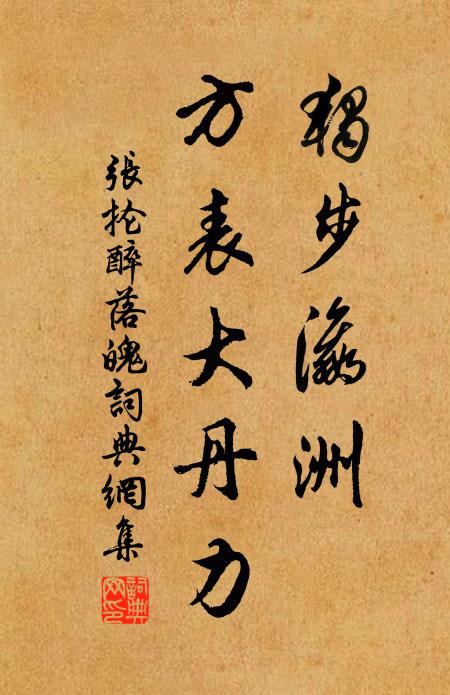 獨步瀛洲
方表大丹力
張抡醉落魄詞典網集
詞典
网印